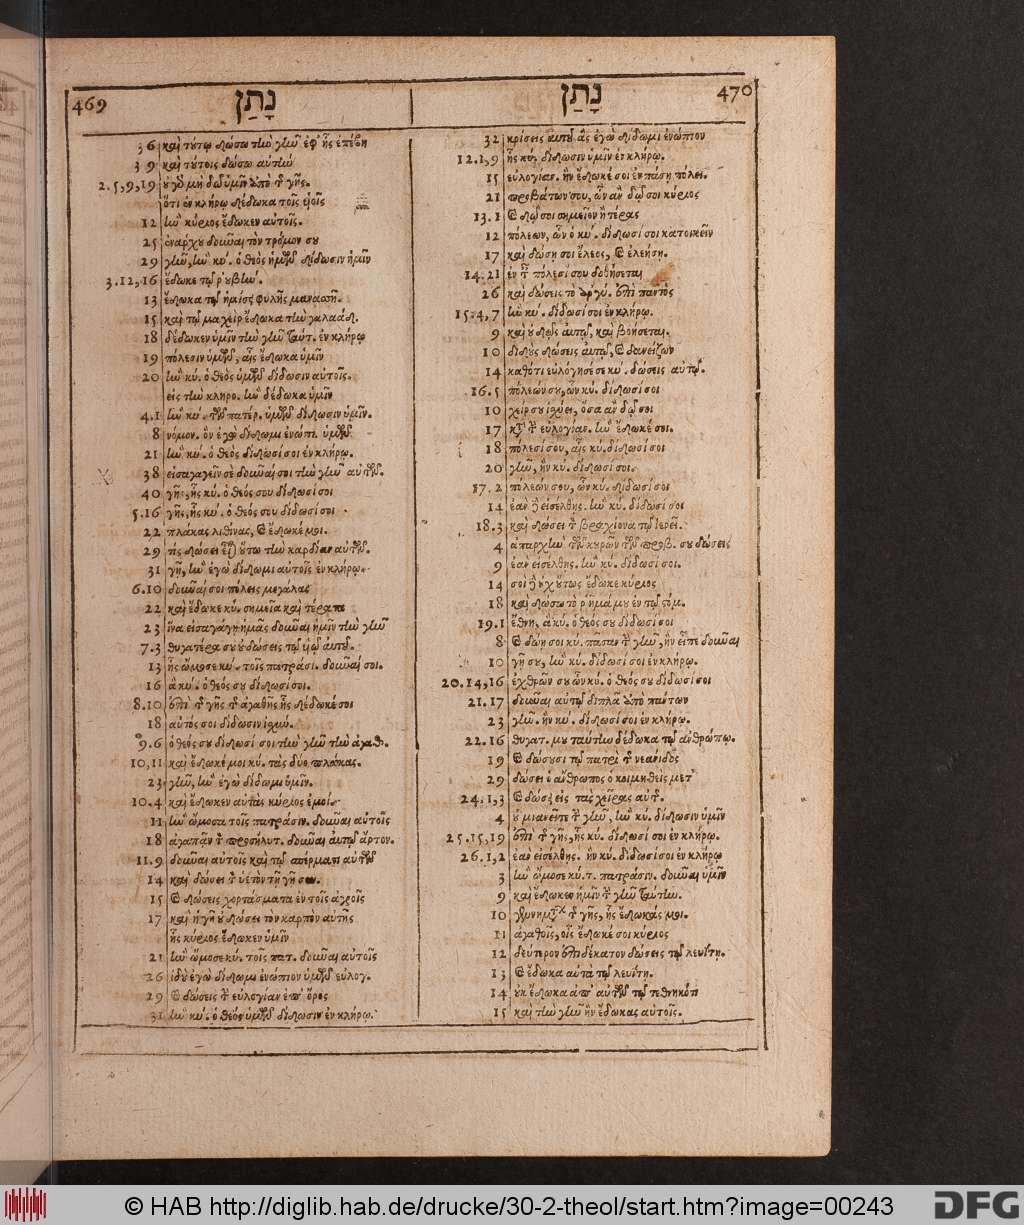 469
נָתַן
36 καὶ τούτῳ δώσω τὴν γῆν ἐφ' ἧς ἐπέβη
39 καὶ τούτοις δώσω αὐτὴν
2.5,9,19 οὐ γὸ μὴ δῶ ὑμῖν ἀπὸ τ̃ γῆς.
ὅτι ἐν κλήρῳ δέδωκα τοῖς υἱοῖς
12 ἣν κύριος ἔδωκεν αὐτοῖς.
25 ἐνάρχου δοῦναι τὸν τρόμον σου
29 γῆν, ἣν κύ. ὁ θεὸς ἡμῶν δίδωσιν ἡμῖν
3.12,16 ἔδωκα τῷ ρουβὴν.
13 ἔδωκα τῷ ἡμίσει φυλῆς μανασσῆ.
15 καὶ τῷ μαχεὶρ ἔδωκα τὴν γαλαάδ.
18 δέδωκεν ὑμῖν τὴν γῆν ταύτ. ἐν κλήρῳ
19 πόλεσιν ὑμῶν, αἷς ἔδωκα ὑμῖν
20 ἣν κύ. ὁ θεὸς ὑμῶν δίδωσιν αὐτοῖς.
εἰς τὴν κληρο. ἣν δέδωκα ὑμῖν
4.1 ἣν κύ. τῶν πατέρ. ὑμῶν δίδωσιν ὑμῖν.
8 νόμον. ὃν ἐγὼ δίδωμι ἐνώπι. ὑμῶν
21 ἣν κύ. ὁ θεὸς δίδωσί σοι ἐν κλήρῳ.
38 εἰσαγαγεῖν σὲ δοῦναί σοι τὴν γῆν αὐτῶν.
40 γῆς, ἧς κύ. ὁ θεός σου δίδωσί σοι
5.16 γῆς, ἧς κύ. ὁ θεός σου δίδωσί σοι
22 πλάκας λιθίνας, καὶ ἔδωκέ μοι.
29 τίς δώσει εἶ) οὕτω τὴν καρδίαν αὐτῶν.
31 γῇ, ἣν ἐγὼ δίδωμι αὐτοῖς ἐν κλήρῳ.
6.10 δοῦναί σοι πόλεις μεγάλας
22 καὶ ἔδωκε κύ. σημεῖα καὶ τέρατα
23 ἵνα εἰσαγάγῃ ἡμᾶς δοῦναι ἡμῖν τὴν γῆν
7.3 θυγατέρα σου οὐ δώσεις τῷ υἱῷ αὐτοῦ.
13 ἧς ὤμοσε κύ. τοῖς πατράσι. δοῦναί σοι.
16 ἃ κύ. ὁ θεός σου δίδωσί σοι.
8.10 ἐπὶ τ̃ γῆς τ̃ ἀγαθῆς ἧς δέδωκέ σοι
18 αὐτός σοι δίδωσιν ἰσχύν.
9.6 ὁ θεός σου δίδωσί σοι τὴν γῆν τὴν ἀγαθ.
10,11 καὶ ἔδωκέ μοι κύ. τὰς δύο πλάκας.
23 γῆν, ἣν ἐγὼ δίδωμι ὑμῖν.
10.4 καὶ ἔδωκεν αὐτὰς κύριος ἐμοί.
11 ἣν ὤμοσα τοῖς πατράσιν. δοῦναι αὐτοῖς
18 ἀγαπᾶν τ̃ προσήλυτ. δοῦναι αὐτῷ ἄρτον.
11.9 δοῦναι αὐτοῖς καὶ τῷ σπέρματι αὐτῶν
14 καὶ δώσει τ̃ ὑετὸν τῇ γῇ σου.
15 καὶ δώσεις χορτάσματα ἐν τοῖς ἀγροῖς
17 καὶ ἡ γῆ οὐ δώσει τὸν καρπὸν αὐτῆς
ἧς κύριος ἔδωκεν ὑμῖν
21 ἣν ὤμοσε κύ. τοῖς πατ. δοῦναι αὐτοῖς
26 ἰδοὺ ἐγὼ δίδωμι ἐνώπιον ὑμῶν εὐλογ.
29 καὶ δώσεις τ̃ εὐλογίαν ἐπ' ὄρος
31 ἣν κύ. ὁ θεὸς ὑμῶν δίδωσιν ἐν κλήρῳ.
470
נָתַן
32 κρίσεις αὐτοῦ ἃς ἐγὼ δίδωμι ἐνώπιον
12.1,9 ἧς κύ. δίδωσιν ὑμῖν ἐν κλήρῳ.
15 εὐλογίαν. ἣν ἔδωκέ σοι ἐν πάσῃ πόλει.
21 προβάτων σου, ὧν ἂν δῷ σοι κύριος
13.1 καὶ δῷ σοι σημεῖον ἢ τέρας
12 πόλεων, ὧν ὁ κύ. δίδωσί σοι κατοικεῖν
17 καὶ δώσῃ σοι ἔλεος, καὶ ἐλεήσῃ.
14.21 ἐν τ̃ πόλεσί σου δοθήσεται
26 καὶ δώσεις τὸ ἀργύ. ἐπὶ παντὸς
15.4,7 ἣν κύ. δίδωσί σοι ἐν κλήρῳ.
9 καὶ οὐ δῷς αὐτῷ, καὶ βοήσεται.
10 διδοὺς δώσεις αὐτῷ, καὶ δανείζων
14 καθότι εὐλόγησέ σε κύ. δώσεις αὐτῷ.
16.5 πόλεών σου, ὧν κύ. δίδωσί σοι
10 χείρ σου ἰσχύει, ὅσα ἂν δῷ σοι
17 κτ̀ τ̃ εὐλογίαν. ἣν ἔδωκέ σοι.
18 πόλεσί σου, αἷς κύ. δίδωσί σοι
20 γῆν, ἣν κύ. δίδωσί σοι.
17.2 πόλεών σου, ὧν κύ. δίδωσί σοι
14 ἐὰν ἢ εἰσέλθῃς. ἣν κύ. δίδωσί σοι
18.3 καὶ δώσει τ̃ βραχίονα τῷ ἱερεῖ.
4 ἀπαρχὴν τῶν κουρῶν τῶν προβ. σου δώσεις
9 ἐὰν εἰσέλθῃς. ἣν κύ. δίδωσί σοι.
14 σοὶ ἢ οὐχ οὕτως ἔδωκε κύριος
18 καὶ δώσω τὸ ῥῆμά μου ἐν τῷ στόμ.
19.1 ἔθνη, ἃ κύ. ὁ θεός σου δίδωσί σοι
8 καὶ δώῃ σοι κύ. πᾶσαν τ̃ γῆν, ἣν εἶπε δοῦναι
10 γῇ σου, ἣν κύ. δίδωσί σοι ἐν κλήρῳ.
20.14,16 ἐχθρῶν σου ὧν κύ. ὁ θεός σου δίδωσί σοι
21.17 δοῦναι αὐτῷ διπλᾶ ἀπὸ πάντων
23 γῆν. ἣν κύ. δίδωσί σοι ἐν κλήρῳ.
22.16 θυγατ. μου ταύτην δέδωκα τῷ ἀνθρώπῳ.
19 καὶ δώσουσι τῷ πατρὶ τ̃ νεανίδος
29 δώσει ὁ ἄνθρωπος ὁ κοιμηθεὶς μετ'
24.1,3 καὶ δώσει εἰς τὰς χεῖρας αὐτ̃.
4 οὐ μιανεῖτε τ̃ γῆν, ἣν κύ. δίδωσιν ὑμῖν
25.15,19 ἐπὶ τ̃ γῆς, ἧς κύ. δίδωσί σοι ἐν κλήρῳ.
26.1,2 ἐὰν εἰσέλθῃς. ἣν κύ. δίδωσί σοι ἐν κλήρῳ
3 ἣν ὤμοσε κύ. τ. πατράσιν. δοῦναι ὑμῖν
9 καὶ ἔδωκεν ἡμῖν τ̃ γῆν ταύτην.
10 γεννημάτων τ̃ γῆς, ἧς ἔδωκάς μοι.
11 ἀγαθοῖς, οἷς ἔδωκέ σοι κύριος
12 δεύτερον ἐπιδέκατον δώσεις τῷ λευίτῃ.
13 καὶ ἔδωκα αὐτὰ τῷ λευίτῃ.
14 οὐκ ἔδωκα ἀπ' αὐτῶν τῷ τεθνηκότι
15 καὶ τὴν γῆν ἣν ἔδωκας αὐτοῖς.
© HAB http://diglib.hab.de/drucke/30-2-theol/start.htm?image=00243
DFG